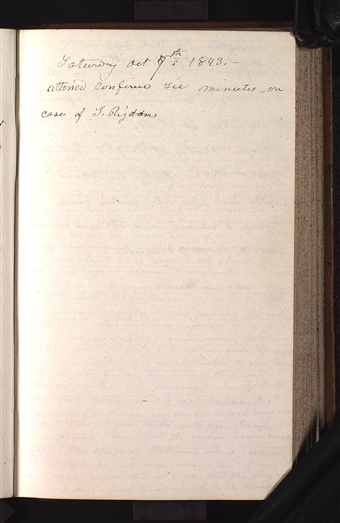 Saturday Oct 7th 1843.-
attend Confrence see minutes - on
case of S. Rigdon,